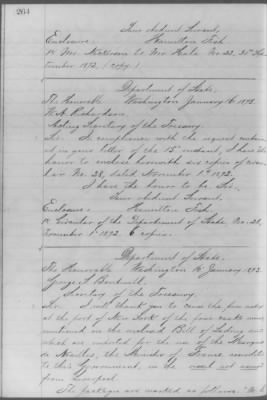 204
Your obedient Servant,
Enclosure. Hamilton Fish.
1. Mr. Nickerson to Mr. Hale No. 22, 30th Sep-
tember 1872. (copy)
Department of State,
The Honorable Washington January 16. 1873.
W. A. Richardson,
Acting Secretary of the Treasury.
Sir: In compliance with the request contain-
ed in your letter of the 15th instant, I have the
honor to enclose herewith six copies of Circu-
lar No. 28, dated November 1st 1872.
I have the honor to be Sir,
Your obedient Servant,
Enclosure: Hamilton Fish.
1. Circular of the Department of State No. 28,
November 1st 1872. 6 copies.
Department of State,
The Honorable Washington 16th January 1873.
George S. Boutwell,
Secretary of the Treasury.
Sir: I will thank you to cause the free entry
at the port of New York of the four casks
mentioned in the enclosed Bill of Lading and
which are imported for the use of the Marquis
de Noailles, the Minister of France accredited
to this Government, in the
from Liverpool.
The packages are marked as follows: